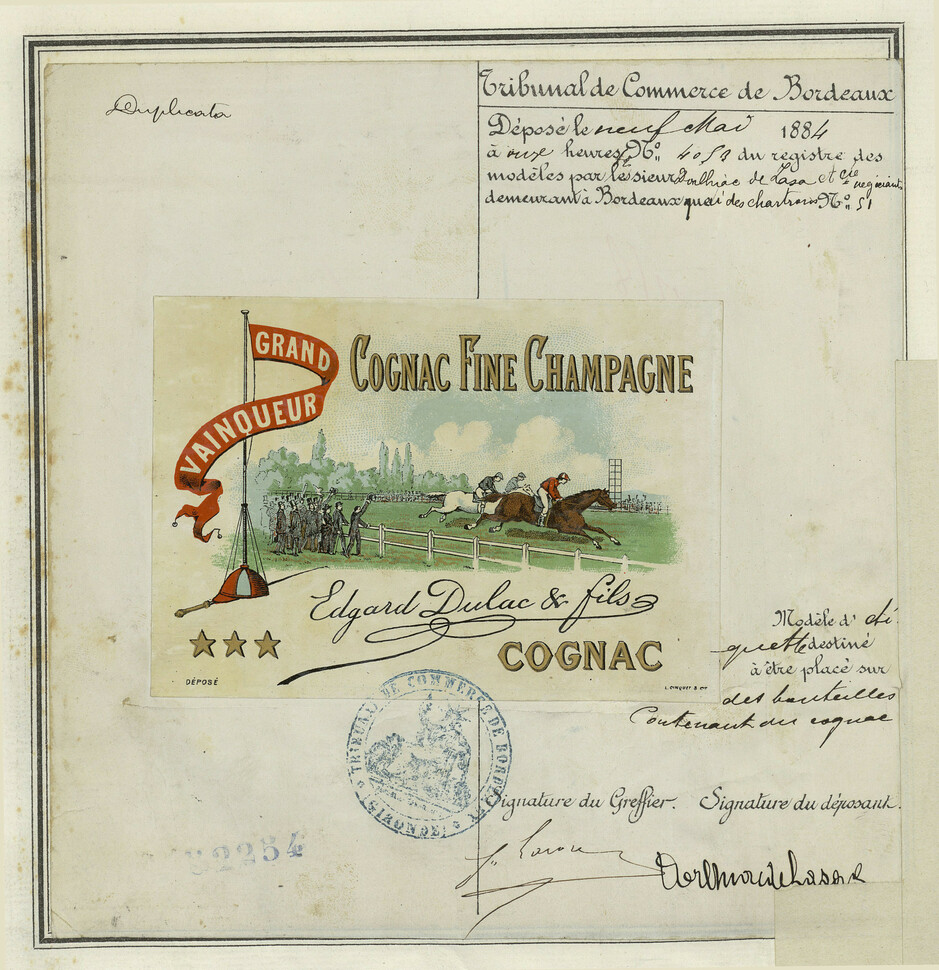 Duplicata
Tribunal de Commerce de Bordeaux
Déposé le neuf Mai 1884
à onze heures, No. 4053 du registre des
modèles par les sieurs de Lasa et Cie négociants
demeurant à Bordeaux quai des chartrons No. 51
GRAND
VAINQUEUR
COGNAC FINE CHAMPAGNE
Edgard Dulac & fils
COGNAC
DÉPOSÉ
Modèle d' éti-
quette destiné
à être placé sur
des bouteilles
Contenant du cognac
TRIBUNAL DE COMMERCE DE BORDEAUX
(GIRONDE)
Signature du Greffier. Signature du déposant.
32254